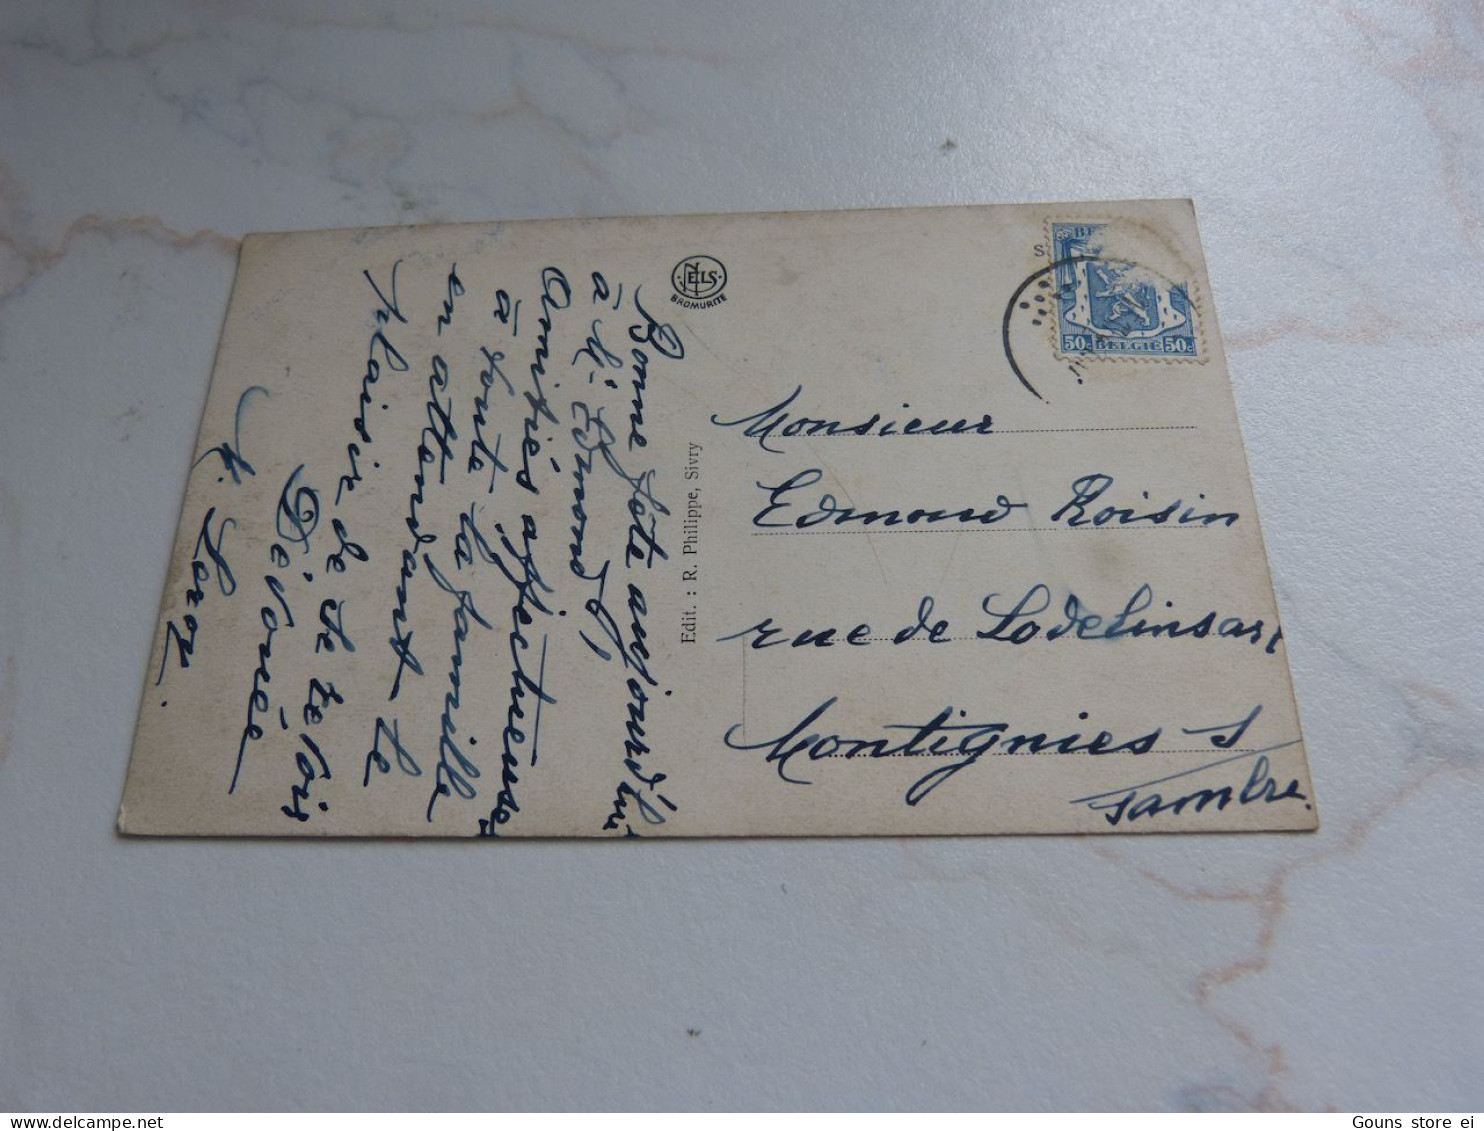 Bonne fête aujourd'hui
à Mr Edmond,
Amitiés affectueuses
à toute la famille
en attendant le
plaisir de te revoir
Dévouée
NELS
BROMURITE
Edit. : R. Philippe, Sivry
S
BE
50c BELGIE 50c
Monsieur
Edmond Roisin
rue de Lodelinsart
Montignies s/
Sambre.
Gouns store ei